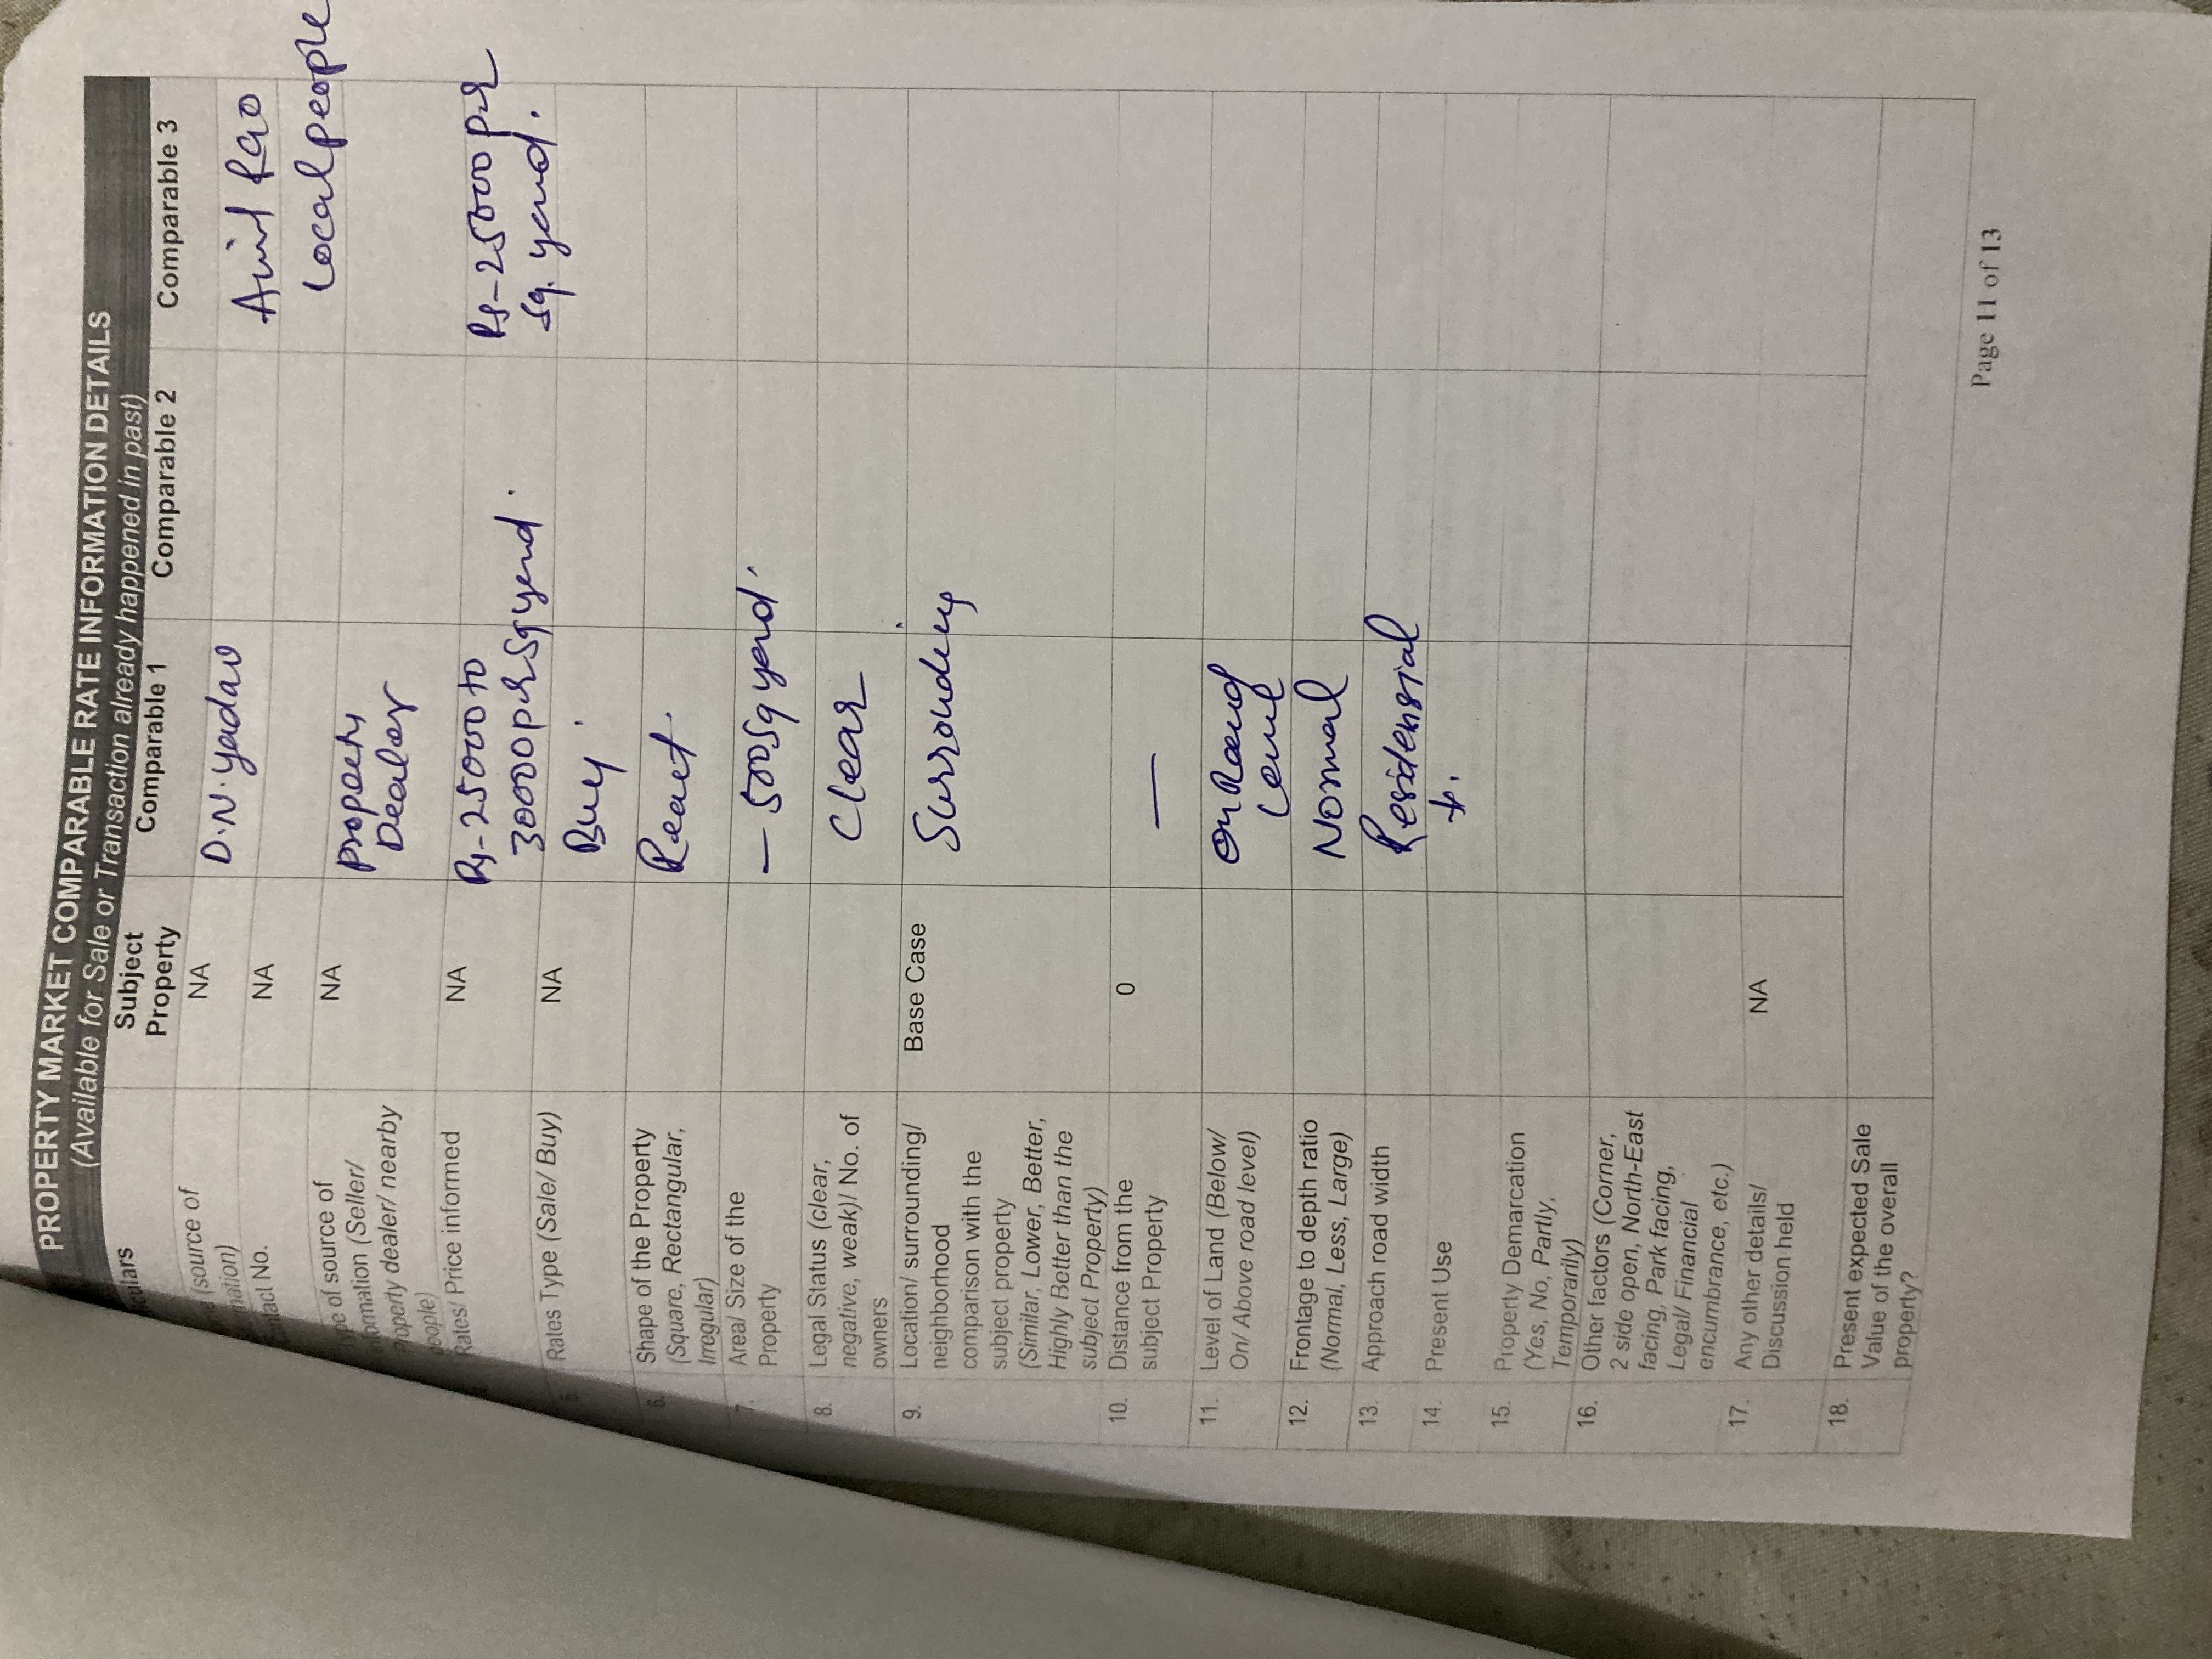 PROPERTY MARKET COMPARABLE RATE INFORMATION DETAILS
(Available for Sale or Transaction already happened in past)
Subject Property Comparable 1 Comparable 2 Comparable 3
(source of NA D.N. Yadav Amit Rao
No. NA
of source of NA Property Dealer Local people
(Seller/
Property dealer/ nearby
people)
Rates/ Price informed NA Rs-25000 to Rs-25000 per
30000 per Sq yard. Sq. yard.
Rates Type (Sale/ Buy) NA Buy.
6. Shape of the Property React.
(Square, Rectangular,
Irregular)
7. Area/ Size of the — 500 Sq yard.
Property
8. Legal Status (clear, Clear
negative, weak)/ No. of
owners
9. Location/ surrounding/ Base Case Surrounding
neighborhood
comparison with the
subject property
(Similar, Lower, Better,
Highly Better than the
subject Property)
10. Distance from the 0 —
subject Property
11. Level of Land (Below/ On Raod
On/ Above road level) Level
12. Frontage to depth ratio Normal
(Normal, Less, Large)
13. Approach road width Residensial
14. Present Use
15. Property Demarcation
(Yes, No, Partly,
Temporarily)
16. Other factors (Corner,
2 side open, North-East
facing, Park facing,
Legal/ Financial
encumbrance, etc.)
17. Any other details/ NA
Discussion held
18. Present expected Sale
Value of the overall
property?
Page 11 of 13